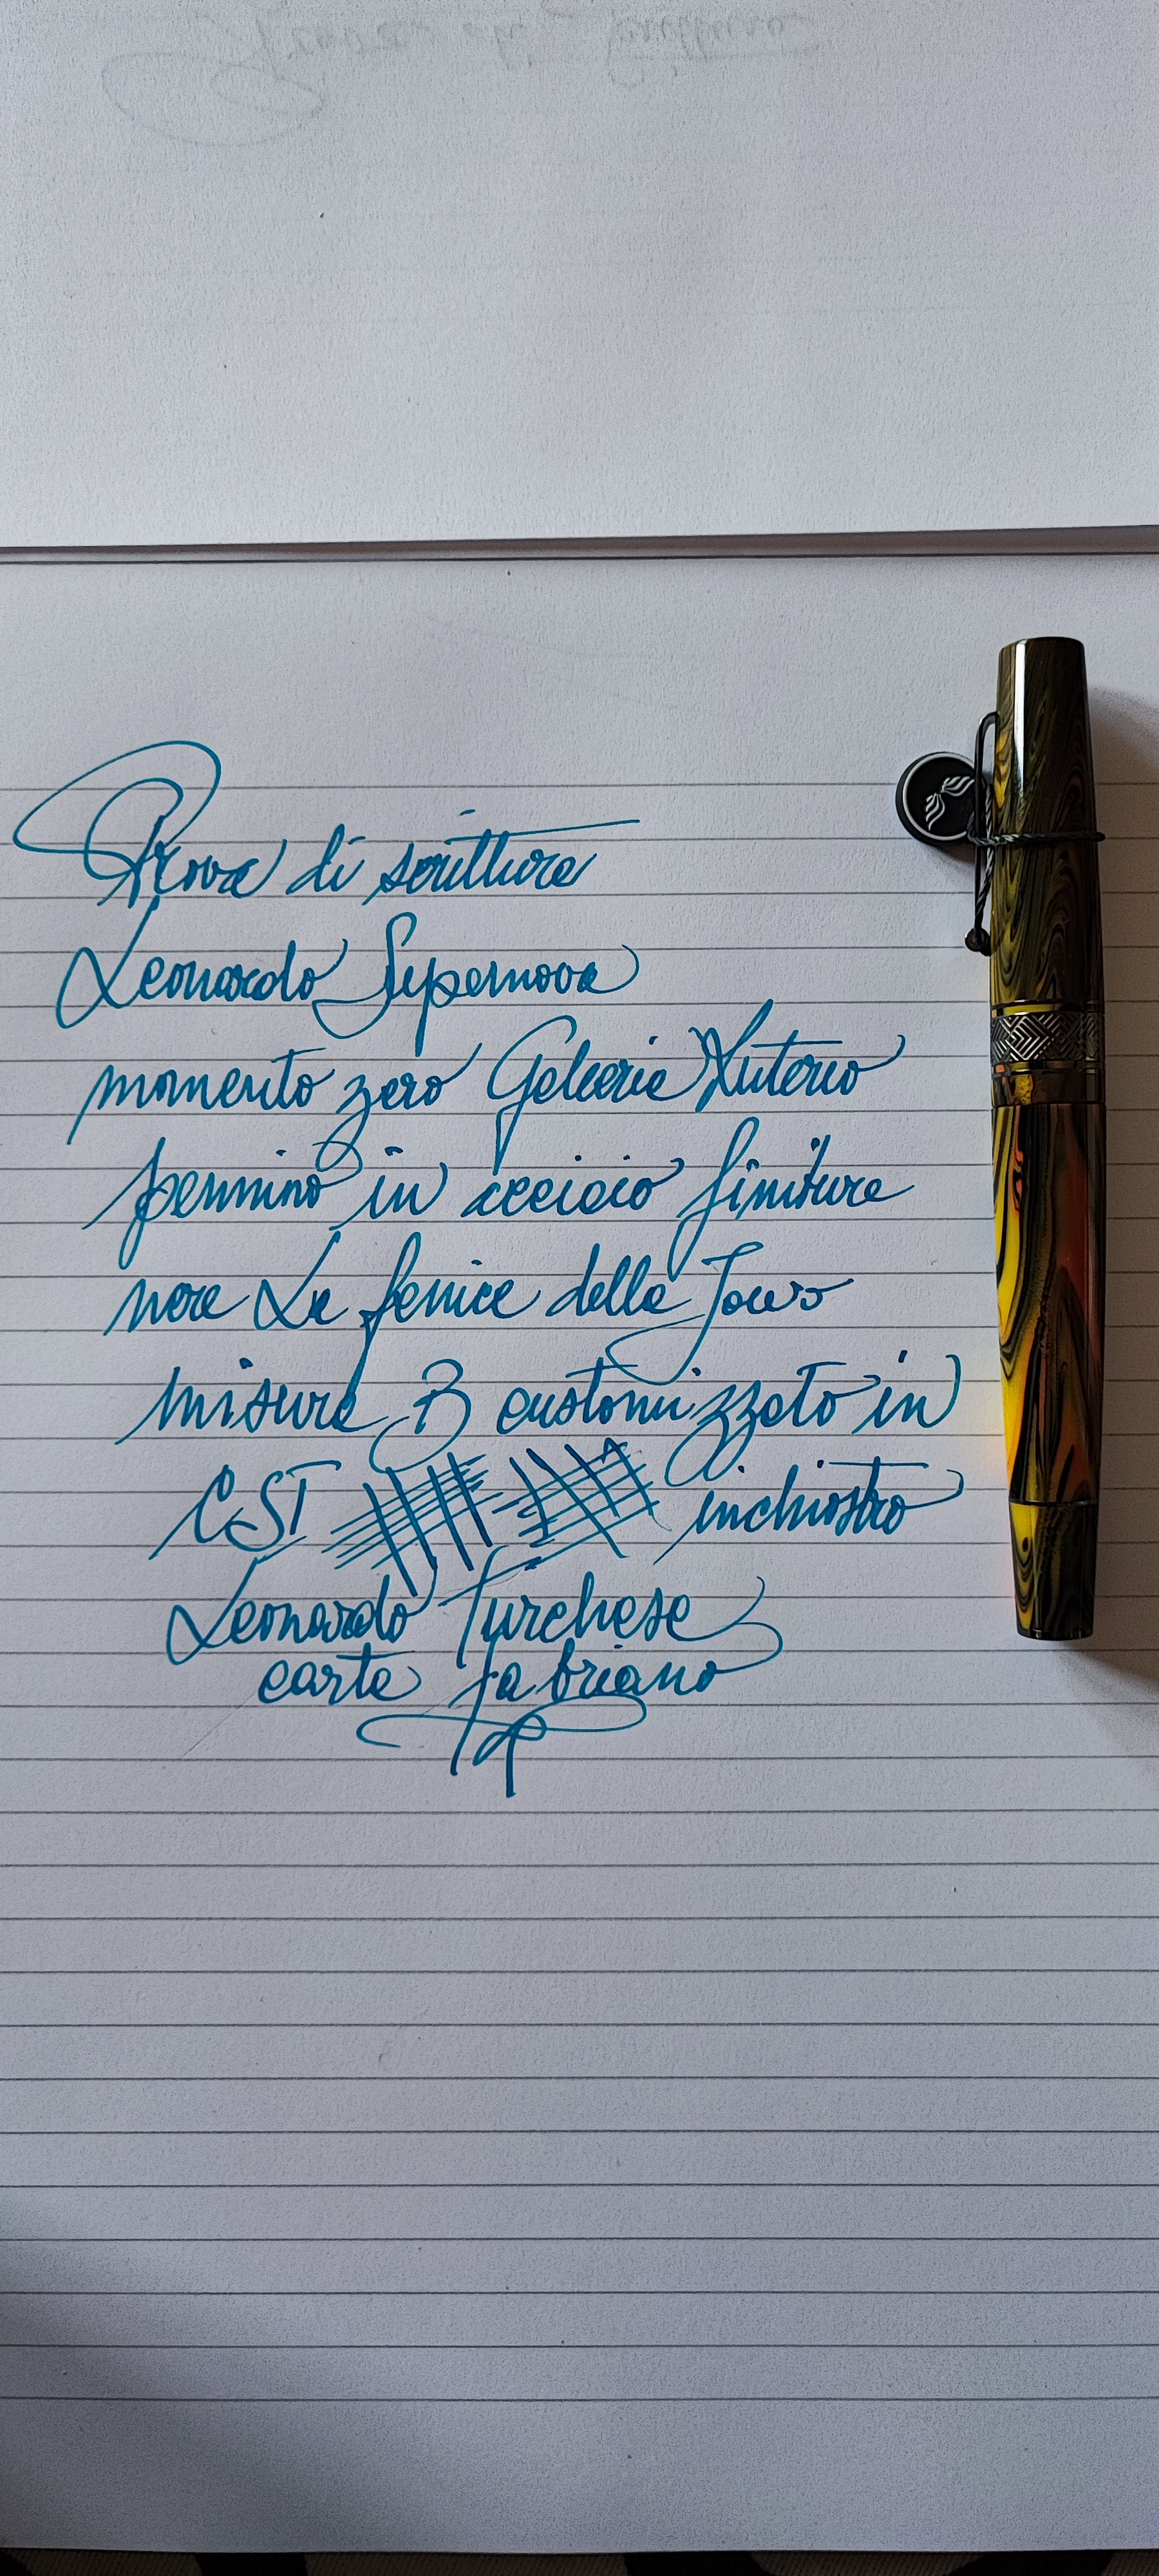 Prova di scrittura
Leonardo Supernova
momento zero Galleria
pennino in acciaio finiture
nere La fenice della Jowo
misura B customizzato in
CSI inchiostro
Leonardo Turchese
carta fabriano